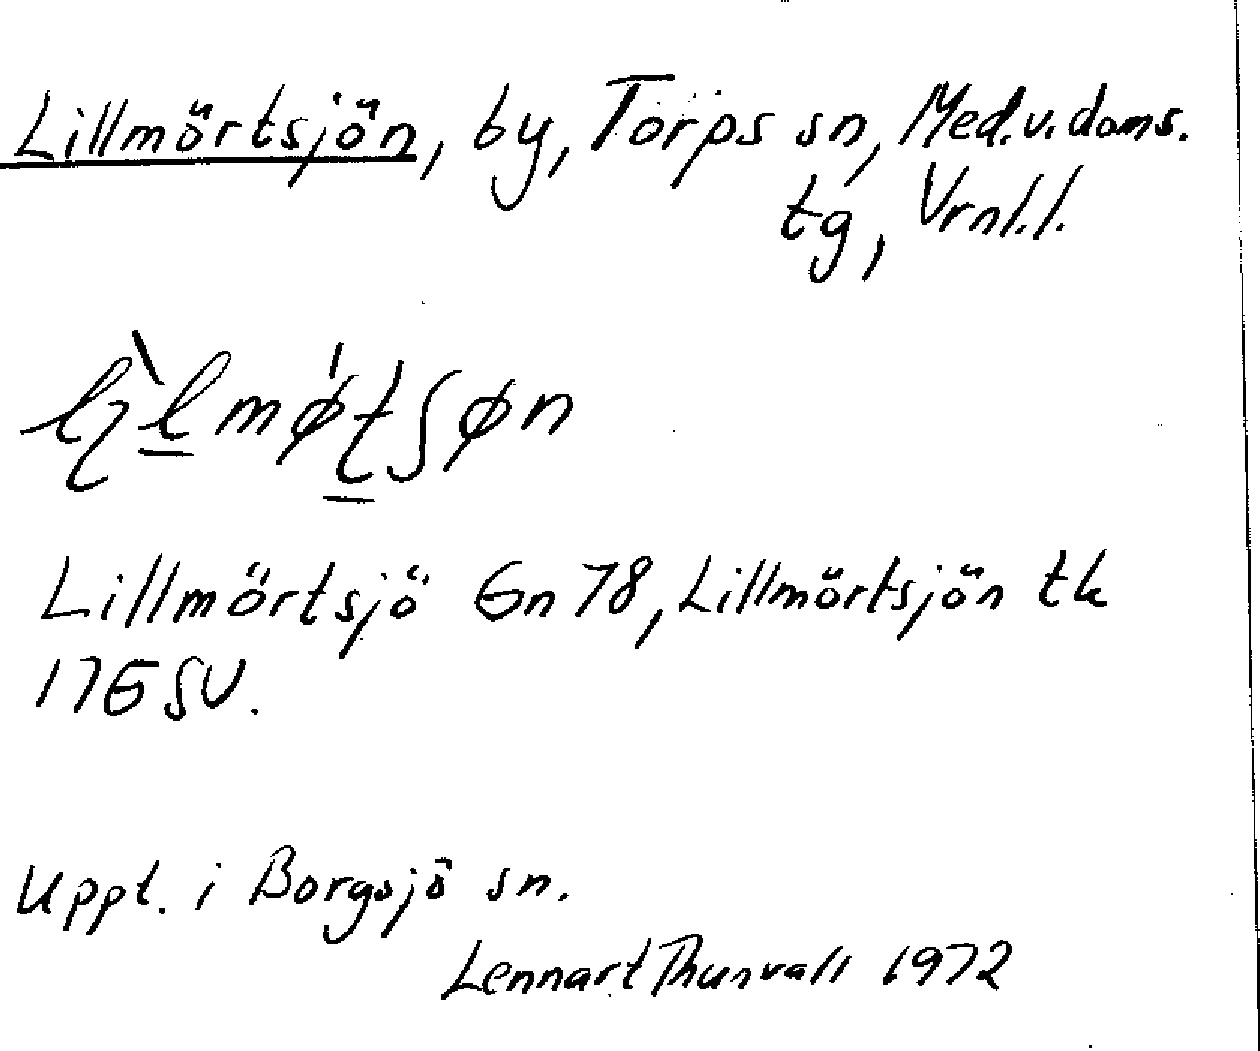 Lillmörtsjön, by, Torps sn, Med.v.doms.
tg, Vrnl.l.
Lillmörtsjö Gn 78, Lillmörtsjön tk
17G SV.
Uppt. i Borgsjö sn.
Lennart Thunvall 1972